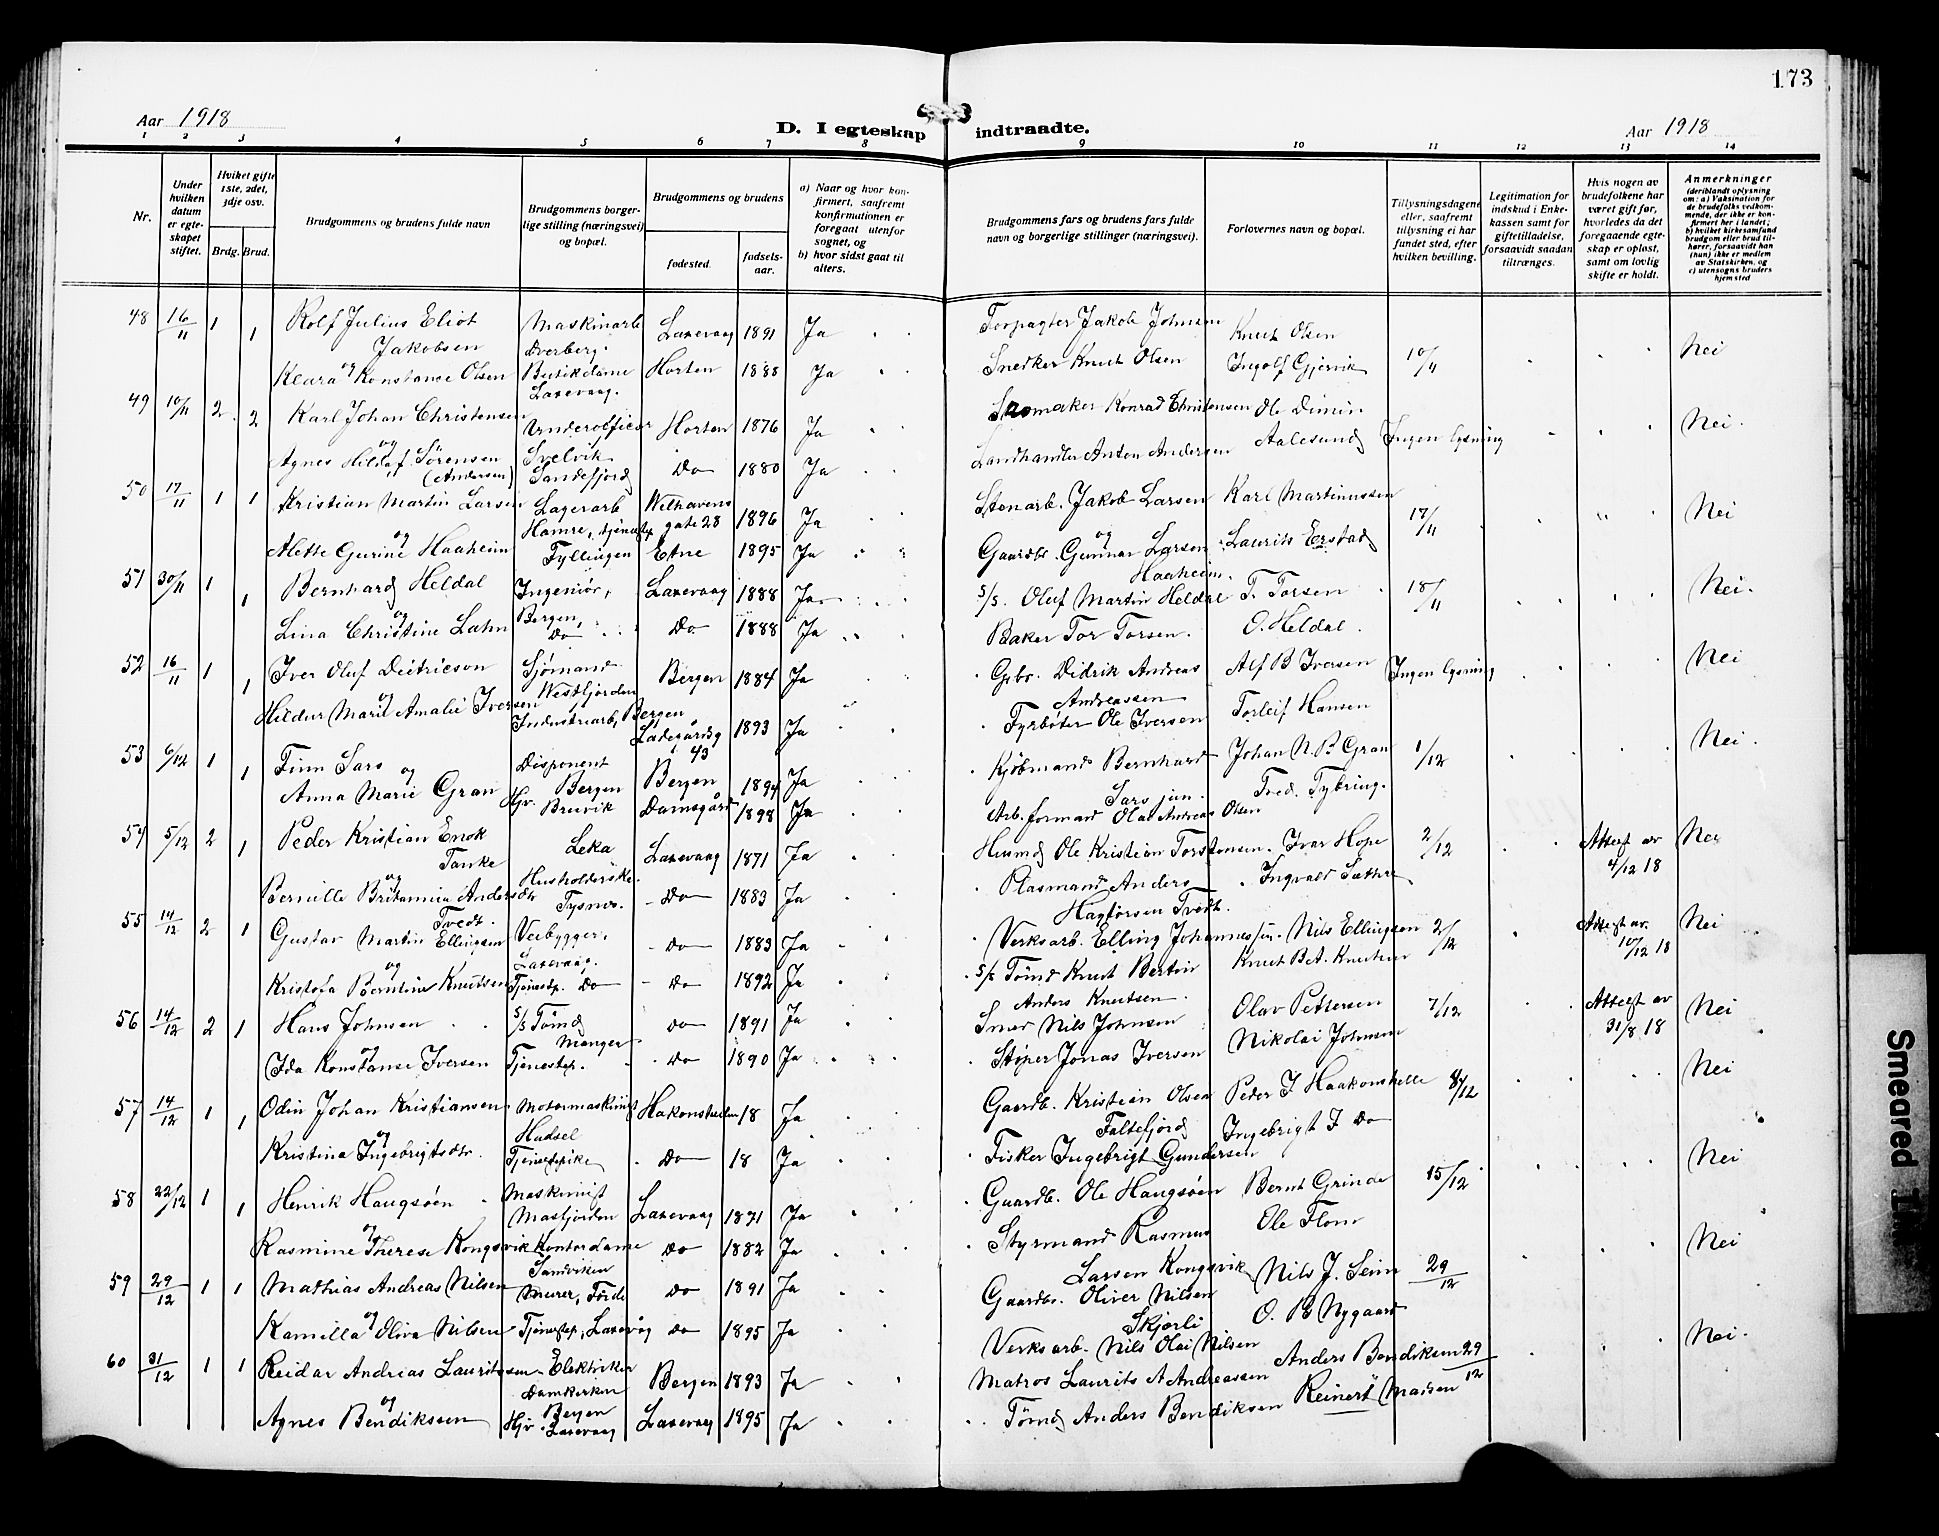 173
Aar 1918
D. I egteskap indtraadte.
Aar 1918
1 2 3 4 5 6 7 8 9 10 11 12 13 14
Nr.
Under hvilken datum er egteskapet stiftet.
Hvilket gifte 1ste, 2det, 3dje osv.
Brdg. Brud.
Brudgommens og brudens fulde navn
Brudgommens borgerlige stilling (næringsvei) og bopæl.
Brudgommens og brudens
fødested.
fødselsaar.
a) Naar og hvor konfirmert, saafremt konfirmationen er foregaat utenfor sognet, og
b) hvor sidst gaat til alters.
Brudgommens fars og brudens fars fulde navn og borgerlige stillinger (næringsvei).
Forlovernes navn og bopæl.
Tillysningsdagene eller, saafremt tillysning ei har fundet sted, efter hvilken bevilling.
Legitimation for indskud i Enkekassen samt for giftetilladelse, forsaavidt saadan tiltrænges.
Hvis nogen av brudefolkene har været gift før, hvorledes da det foregaaende egteskap er opløst, samt om lovlig skifte er holdt.
Anmerkninger
(deriblandt oplysning om: a) Vaksination for de brudefolks vedkommende, der ikke er konfirmert her i landet; b) hvilket kirkesamfund brudgom eller brud tilhører, forsaavidt han (hun) ikke er medlem av Statskirken, og c) utensogns bruders hjemsted
48 16/11 1 1 Rolf Julius Eliot Jakobsen Maskinarb Laxevaag 1891 Ja Forpagter Jakob Johnsen Knut Olsen
og Klara Konstanse Olsen Butikdame Laxevaag. Horten 1888 Ja Snedker Knut Olsen Ingolf Gjervik 10/11 Nei
49 10/11 2 2 Karl Johan Christensen Underofficer Horten 1876 Ja Skomaker Konrad Christensen Ole Dimin
og Agnes Hilda f. Sørensen (Andersen) Svelvik Sandefjord Do 1880 Ja Landhandler Anton Andersen Aalesund Ingen lysning Nei.
50 17/11 1 1 Kristian Martin Larsen Lagerarb Welhavens gate 28 1896 Ja Stenarb. Jakob Larsen Karl Martinussen
og Alette Gurine Haaheim Hamre, tjenestep Fyllingen Etne 1895 Ja Gaardbr. Gunnar Larsen Haaheim. Laurits Erstad 17/11 Nei
51 30/11 1 1 Bernhard Heldal Ingeniør, Bergen, Laxevaag 1888 Ja S/S. Oluf Martin Heldal T. Torsen 18/11 Nei.
og Lina Christine Lahn Do Do 1888 Ja Baker Tor Torsen. O. Heldal.
52 16/11 1 1 Iver Oluf Deitricson Sjømand Westfjorden Bergen 1884 Ja Gbr. Didrik Andreas Andreassen Alf B Iversen Ingen lysning Nei
og Hildur Marie Amalie Iversen Industriarb, Bergen Ladegårdsg 43 1893 Ja Fyrbøter Ole Iversen Torleif Hansen
53 6/12 1 1 Finn Sars Disponent Bergen Bergen 1894 Ja Kjøbmand Bernhard Sars jun. Johan N. B. Gran 1/12 Nei.
og Anna Marie Gran Hjv. Bruvik Damsgård 1898 Ja Arb. formand Olai Andreas Olsen Fred. Tybring.
54 5/12 2 1 Peder Kristian Enok Tanke Leka Laxevaag 1871 Ja Husmd Ole Kristian Torstensen. Ivar Hope 2/12 Attest av 4/12 18 Nei
og Bernille Britannia Andersdtr Tvedt. Husholderske. Tysnes. Do 1883 Ja Plasmand Anders Hagtorsen Tvedt. Ingvald Sæthre
55 14/12 2 1 Gustav Martin Ellingsen Veibygger, Laxevaag. do 1883 Ja Verksarb. Elling Johannesen. Nils Ellingsen 2/12 Attest av. 10/12 18 Nei
og Kristofa Berntine Knutsen Tjenestp. Do Do 1892 Ja S/S Tømd Knut Bertin Anders Knutsen. Knut B.A. Knutsen
56 14/12 2 1 Hans Johnsen S/S Tømd Manger do 1891 Ja Smed Nils Johnsen Olav Pettersen 7/12 Attest av 31/8 18 Nei
og Ida Konstanse Iversen Tjenestep. do 1890 Ja Støper Jonas Iversen Nikolai Johnsen
57 14/12 1 1 Odin Johan Kristiansen Motormaskinist Hadsel Hakonshellen 18 Ja Gaardb. Kristian Olsen Faltefjord Peder I Haakonshelle 8/12 Nei
og Kristina Ingebrigtsdtr. Tjenestepike Do 18 Ja Fisker Ingebrigt Gundersen Ingebrigt I Do
58 22/12 1 1 Henrik Haugsøen Maskinist Masfjorden Laxevaag 1871 Ja Gaardb. Ole Haugsøen Bernt Grinde 15/12 Nei
og Rasmine Therese Kongsvik Kontordame Sandviken Do 1882 Ja Styrmand Rasmus Larsen Kongsvik Ole Flom
59 29/12 1 1 Mathias Andreas Nilsen Murer, Førde do 1891 Ja Gaardbr. Oliver Nilsen Skjerli Nils J. Seim 29/12 Nei
og Kamilla Oliva Nilsen Tjenestep, Laxevåg do 1895 Ja Verksarb. Nils Olai Nilsen O. B. Nygaard
60 31/12 1 1 Reidar Andreas Lauritssen Elektriker Domkirken Bergen Bergen 1893 Ja Matros Laurits A Andreassen Anders Bendiksen 29/12 Nei.
og Agnes Bendikssen Hjv. Laxevaag Laxevaag 1895 Ja Tømd Anders Bendiksen Reinert Madsen
Smeared